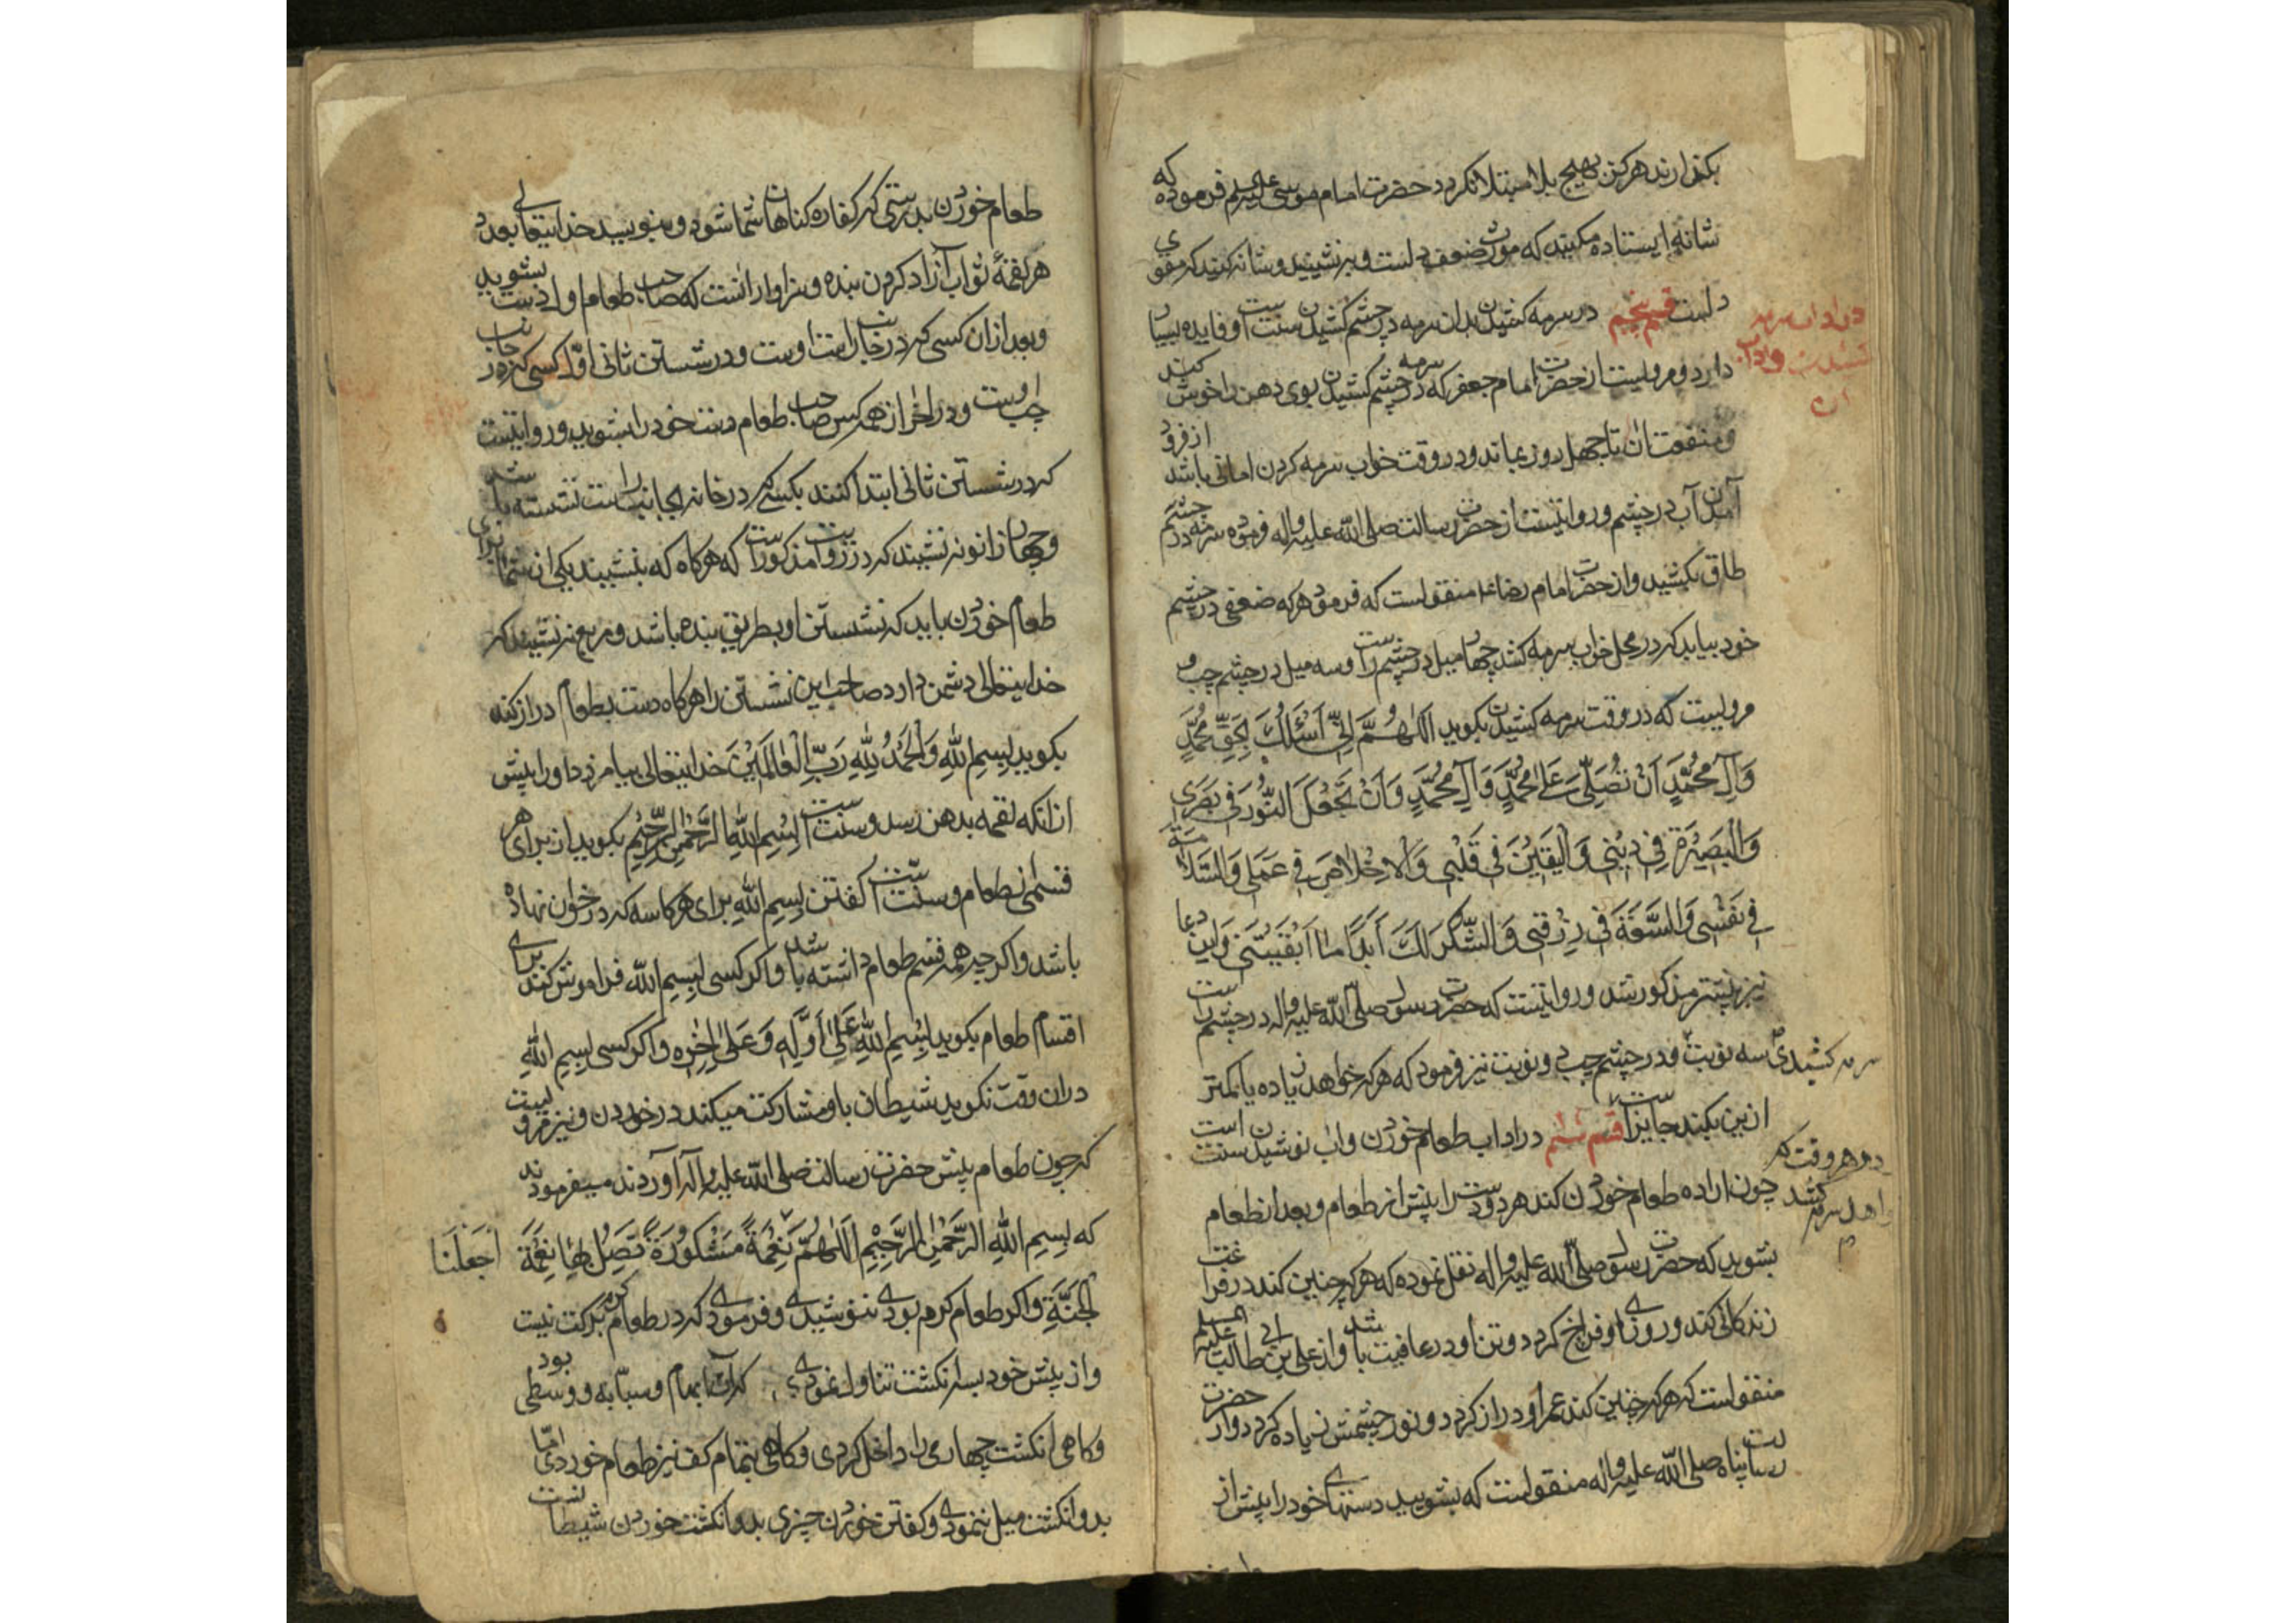 بکذارند هرکز بهیچ بلا مبتلا نکردد حضرت امام موسی علیه السلم فرموده که
شانه ایستاده مکنید که مورث ضعف دلست و بنشینید و شانه کنید که مقوی
دلست قسم پنجم در سرمه کشیدن بدان سرمه در چشم کشیدن سنت است و فایده بسیار
دارد و مرویست از حضرت امام جعفر که سرمه در چشم کشیدن بوی دهن را خوش کند
و منفعت ان تا چهل روز بماند و در وقت خواب سرمه کردن امانی باشد از فرود
آمدن آب در چشم و روایتست از حضرت رسالت صلی الله علیه واله فرموده سرمه در چشم
طاق بکشید و از حضرت امام رضا ع منقولست که فرمود هر که ضعفی در چشم
خود بیابد که در محل خواب سرمه کشد چهار میل در چشم راست و سه میل در چشم چپ و
مرویست که در وقت سرمه کشیدن بکوید اَللّٰهُمَّ اِنّی اَسْئَلُکَ بِحَقِّ مُحَمَّدٍ
وَآلِ مُحَمَّدٍ اَنْ تُصَلِّیَ عَلیٰ مُحَمَّدٍ وَآلِ مُحَمَّدٍ وَاَنْ تَجْعَلَ النُّورَ فی بَصَری
وَالْبَصیرَةَ فِی دینی وَالْیَقینَ فی قَلْبی وَالْاِخْلاصَ فی عَمَلی وَالسَّلامَةَ
فی نَفْسی وَالسَّعَةَ فی رِزْقی وَالشُّکْرَ لَکَ اَبَدًا ما اَبْقَیْتَنی و این دعا
نیز پیشتر مذکور شد و روایتست که حضرت رسول صلی الله علیه واله در چشم راست
سرمه کشیدی سه نوبت و در چشم چپ دو نوبت نیز فرمود که هر که خواهد زیاده یا کمتر
ازین بکند جایز است قسم ششم در اداب طعام خوردن و اب نوشیدن است سنت
چون اراده طعام خوردن کند هر دو دست را پیش از طعام و بعد از طعام
بشوید که حضرت رسول صلی الله علیه واله نقل نموده که هر که چنین کند در فراغت
زندکانی کند و روزی او فراخ کردد و تن او در عافیت باشد و از علی بن ابی طالب علیه السلم
منقولست که هر که چنین کند عمر او دراز کردد و نور چشمش زیاده کردد و از حضرت
رسالت پناه صلی الله علیه واله منقولست که بشویید دستهای خود را پیش از
در اداب سرمه
کشیدن و اداب
ان
هر وقت که
سرمه کشد
طعام خوردن بدرستی که کفاره کناهان شما شود و بنویسید خدایتعالی بعدد
هر لقمهٔ ثواب آزاد کردن بنده و سزاوار انست که صاحب طعام اول دست بشوید
و بعد از ان کسی که در جانب راست اوست و در شستن ثانی اوّل کسی که در جانب
چپ اوست و در اخر از همه کس صاحب طعام دست خود را بشوید و روایتست
که در شستن ثانی ابتدا کنند بکسی که در خانه بجانب راست نشسته باشد
و چهار زانو نه نشیند که در روایت مذکور است که هرکاه که بنشیند یکی از شما برای
طعام خوردن باید که نشستن او بطریق بنده باشد و مربع نه نشیند که
خدایتعالی دشمن دارد صاحب این نشستن را هرکاه دست بطعام دراز کند
بکوید بِسمِ اللهِ وَالْحَمْدُ لِلّهِ رَبِّ الْعالَمینَ خدایتعالی بیامرزد او را پیش
از انکه لقمه بدهن رسد و سنت است بِسْمِ اللهِ الرَّحْمٰنِ الرَّحیمِ بکوید از برای هر
قسمی از طعام و سنّت است کفتن بِسمِ اللهِ برای هر کاسه که در خوان نهاده
باشد و اکر چه همه قسم طعام داشته باشد و اکر کسی بِسمِ الله فراموش کند برای
اقسام طعام بکوید بِسْمِ اللهِ عَلیٰ اَوَّلِهِ وَعَلیٰ اٰخِرِه و اکر کسی بِسمِ اللهِ
در ان وقت نکوید شیطان با او مشارکت میکند در خوردن و نیز مرویست
که چون طعام پیش حضرت رسالت صلی الله علیه واله آوردند میفرمودند
که بِسمِ اللهِ الرَّحْمٰنِ الرَّحیمِ اَللّٰهُمَّ نِعْمَةً مَشْکُورَةً تَصِلُ بِها نِعْمَةَ
اجعَلْنَا
الْجَنَّةِ و اکر طعام کرم بودی ننوشیدی و فرمودی که در طعام کرم برکت نیست
و از پیش خود بسه انکشت تناول نمودی که ان ابهام و سبّابه و وسطی بود
و کاهی انکشت چهارمی را داخل کردی و کاهی بتمام کف نیز طعام خوردی امّا
بدو انکشت میل ننمودی و کفتن خوردن چیزی بدو انکشت خوردن شیطانست